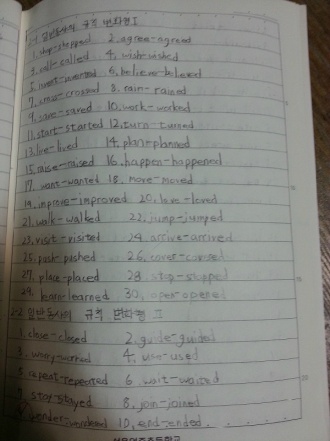 2-1 일반동사의 규칙 변화형 I
1. stop-stopped 2. agree-agreed
3. call-called 4. wish-wished
5. want-wanted 6. believe-believed
7. cross-crossed 8. rain-rained
9. save-saved 10. work-worked
11. start-started 12. turn-turned
13. live-lived 14. plan-planned
15. raise-raised 16. happen-happened
17. want-wanted 18. move-moved
19. improve-improved 20. love-loved
21. walk-walked 22. jump-jumped
23. visit-visited 24. arrive-arrived
25. push-pushed 26. cover-covered
27. place-placed 28. stop-stopped
29. learn-learned 30. open-opened
2-2 일반동사의 규칙 변화형 II
1. close-closed 2. guide-guided
3. worry-worried 4. use-used
5. repeat-repeated 6. wait-waited
7. stay-stayed 8. join-joined
9. wonder-wondered 10. end-ended